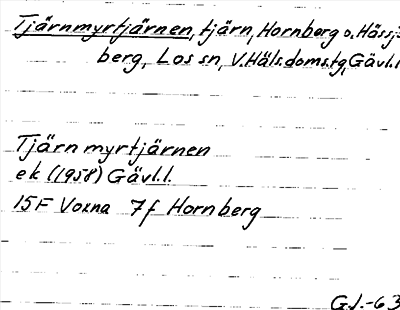 Tjärnmyrtjärnen, tjärn, Hornberg o. Hässj-
berg, Los sn, V. Häls. doms.tg, Gävl.l.
Tjärnmyrtjärnen
ek (1958) Gävl.l.
15F Voxna 7f Hornberg
G.J.-63